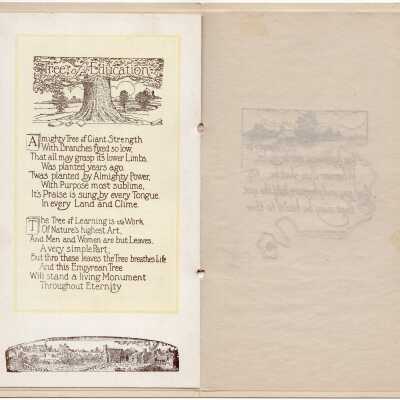 Tree of Education
Almighty Tree of Giant Strength
With Branches fixed so low,
That all may grasp its lower Limbs,
Was planted years ago.
'Twas planted by Almighty Power,
With Purpose most sublime,
It's Praise is sung by every Tongue
In every Land and Clime.
The Tree of Learning is the Work
Of Nature's highest Art,
And Men and Women are but Leaves,
A very simple Part;
But thro these leaves the Tree breathes Life
And this Empyrean Tree
Will stand a living Monument
Throughout Eternity